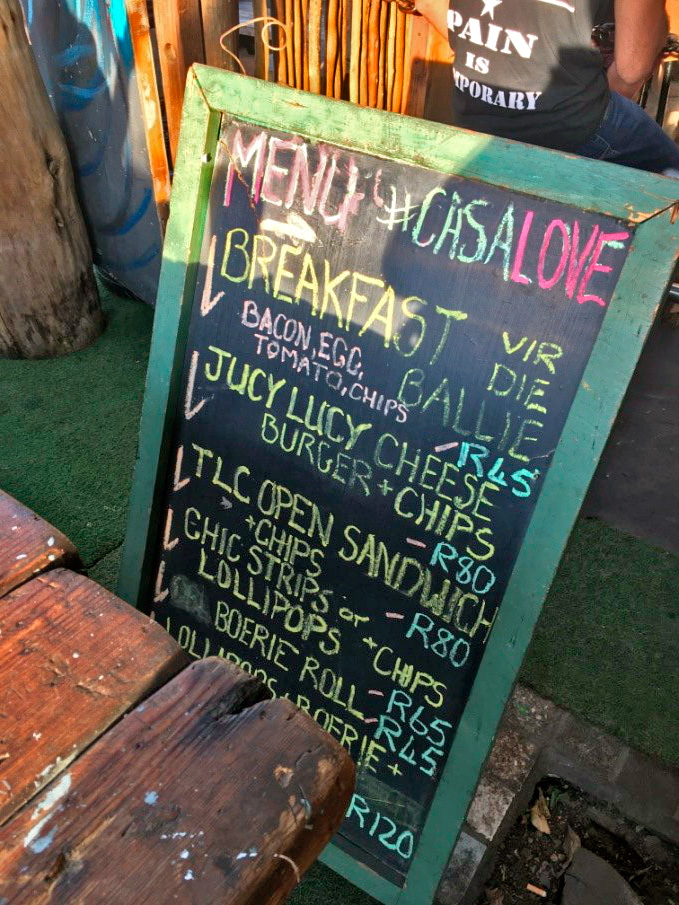 PAIN
IS
MPORARY
MENU #CASALOVE
BREAKFAST VIR
DIE
BALLIE
BACON, EGG,
TOMATO, CHIPS
- R45
JUCY LUCY CHEESE
BURGER + CHIPS
- R80
TLC OPEN SANDWICH
+CHIPS
- R80
CHIC STRIPS or
LOLLIPOPS + CHIPS
- R65
BOERIE ROLL - R45
LOLLIPOPS + BOERIE +
R120